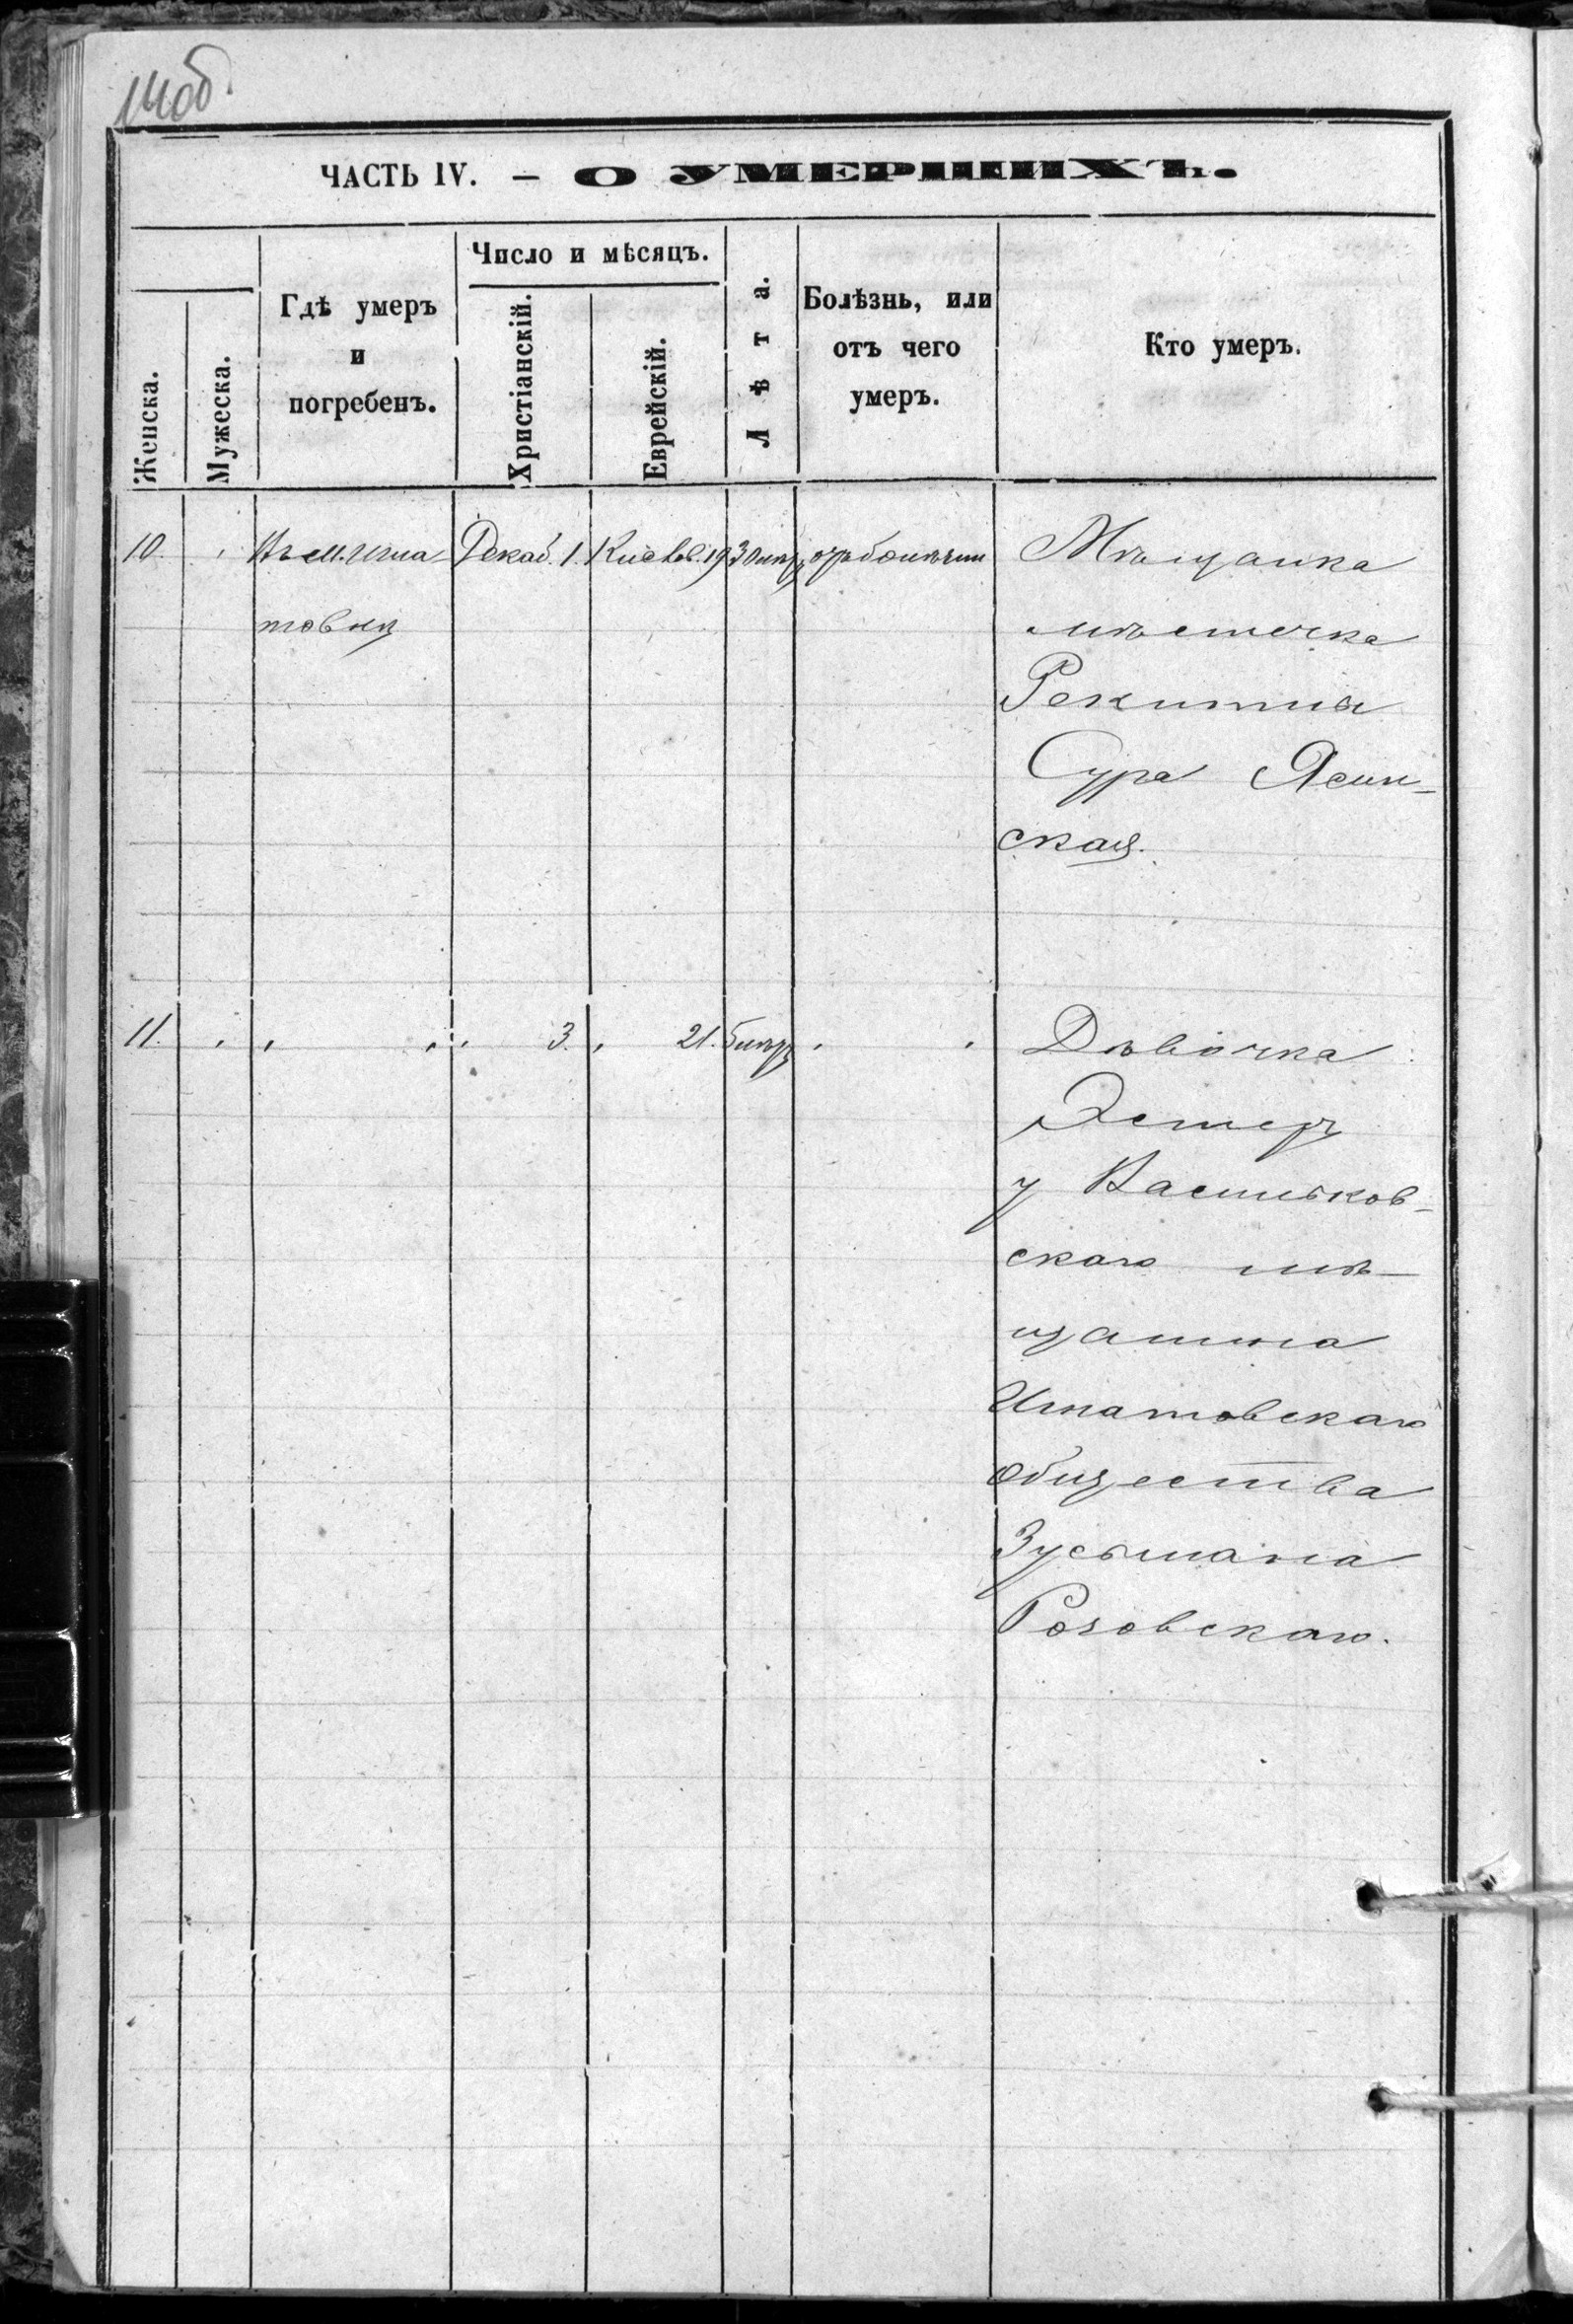 14об.
ЧАСТЬ IV. — О УМЕРШИХЪ.
Женска.
Мужеска.
Гдѣ умеръ
и
погребенъ.
Число и мѣсяцъ.
Христіанскій.
Еврейскій.
Лѣта.
Болѣзнь, или
отъ чего
умеръ.
Кто умеръ.
10. Въ м. Игна- Декаб. 1. Кисlев. 19 30 лѣтъ отъ болѣзни Мѣщанка
товкѣ мѣстечка
Рокитна
Сура Ясин-
ская.
11. 3. 21. 5 лѣтъ Дѣвочка
Эстеръ
у Васильков-
скаго мѣ-
щанина
Игнатовскаго
Общества
Зусьмана
Розовскаго.